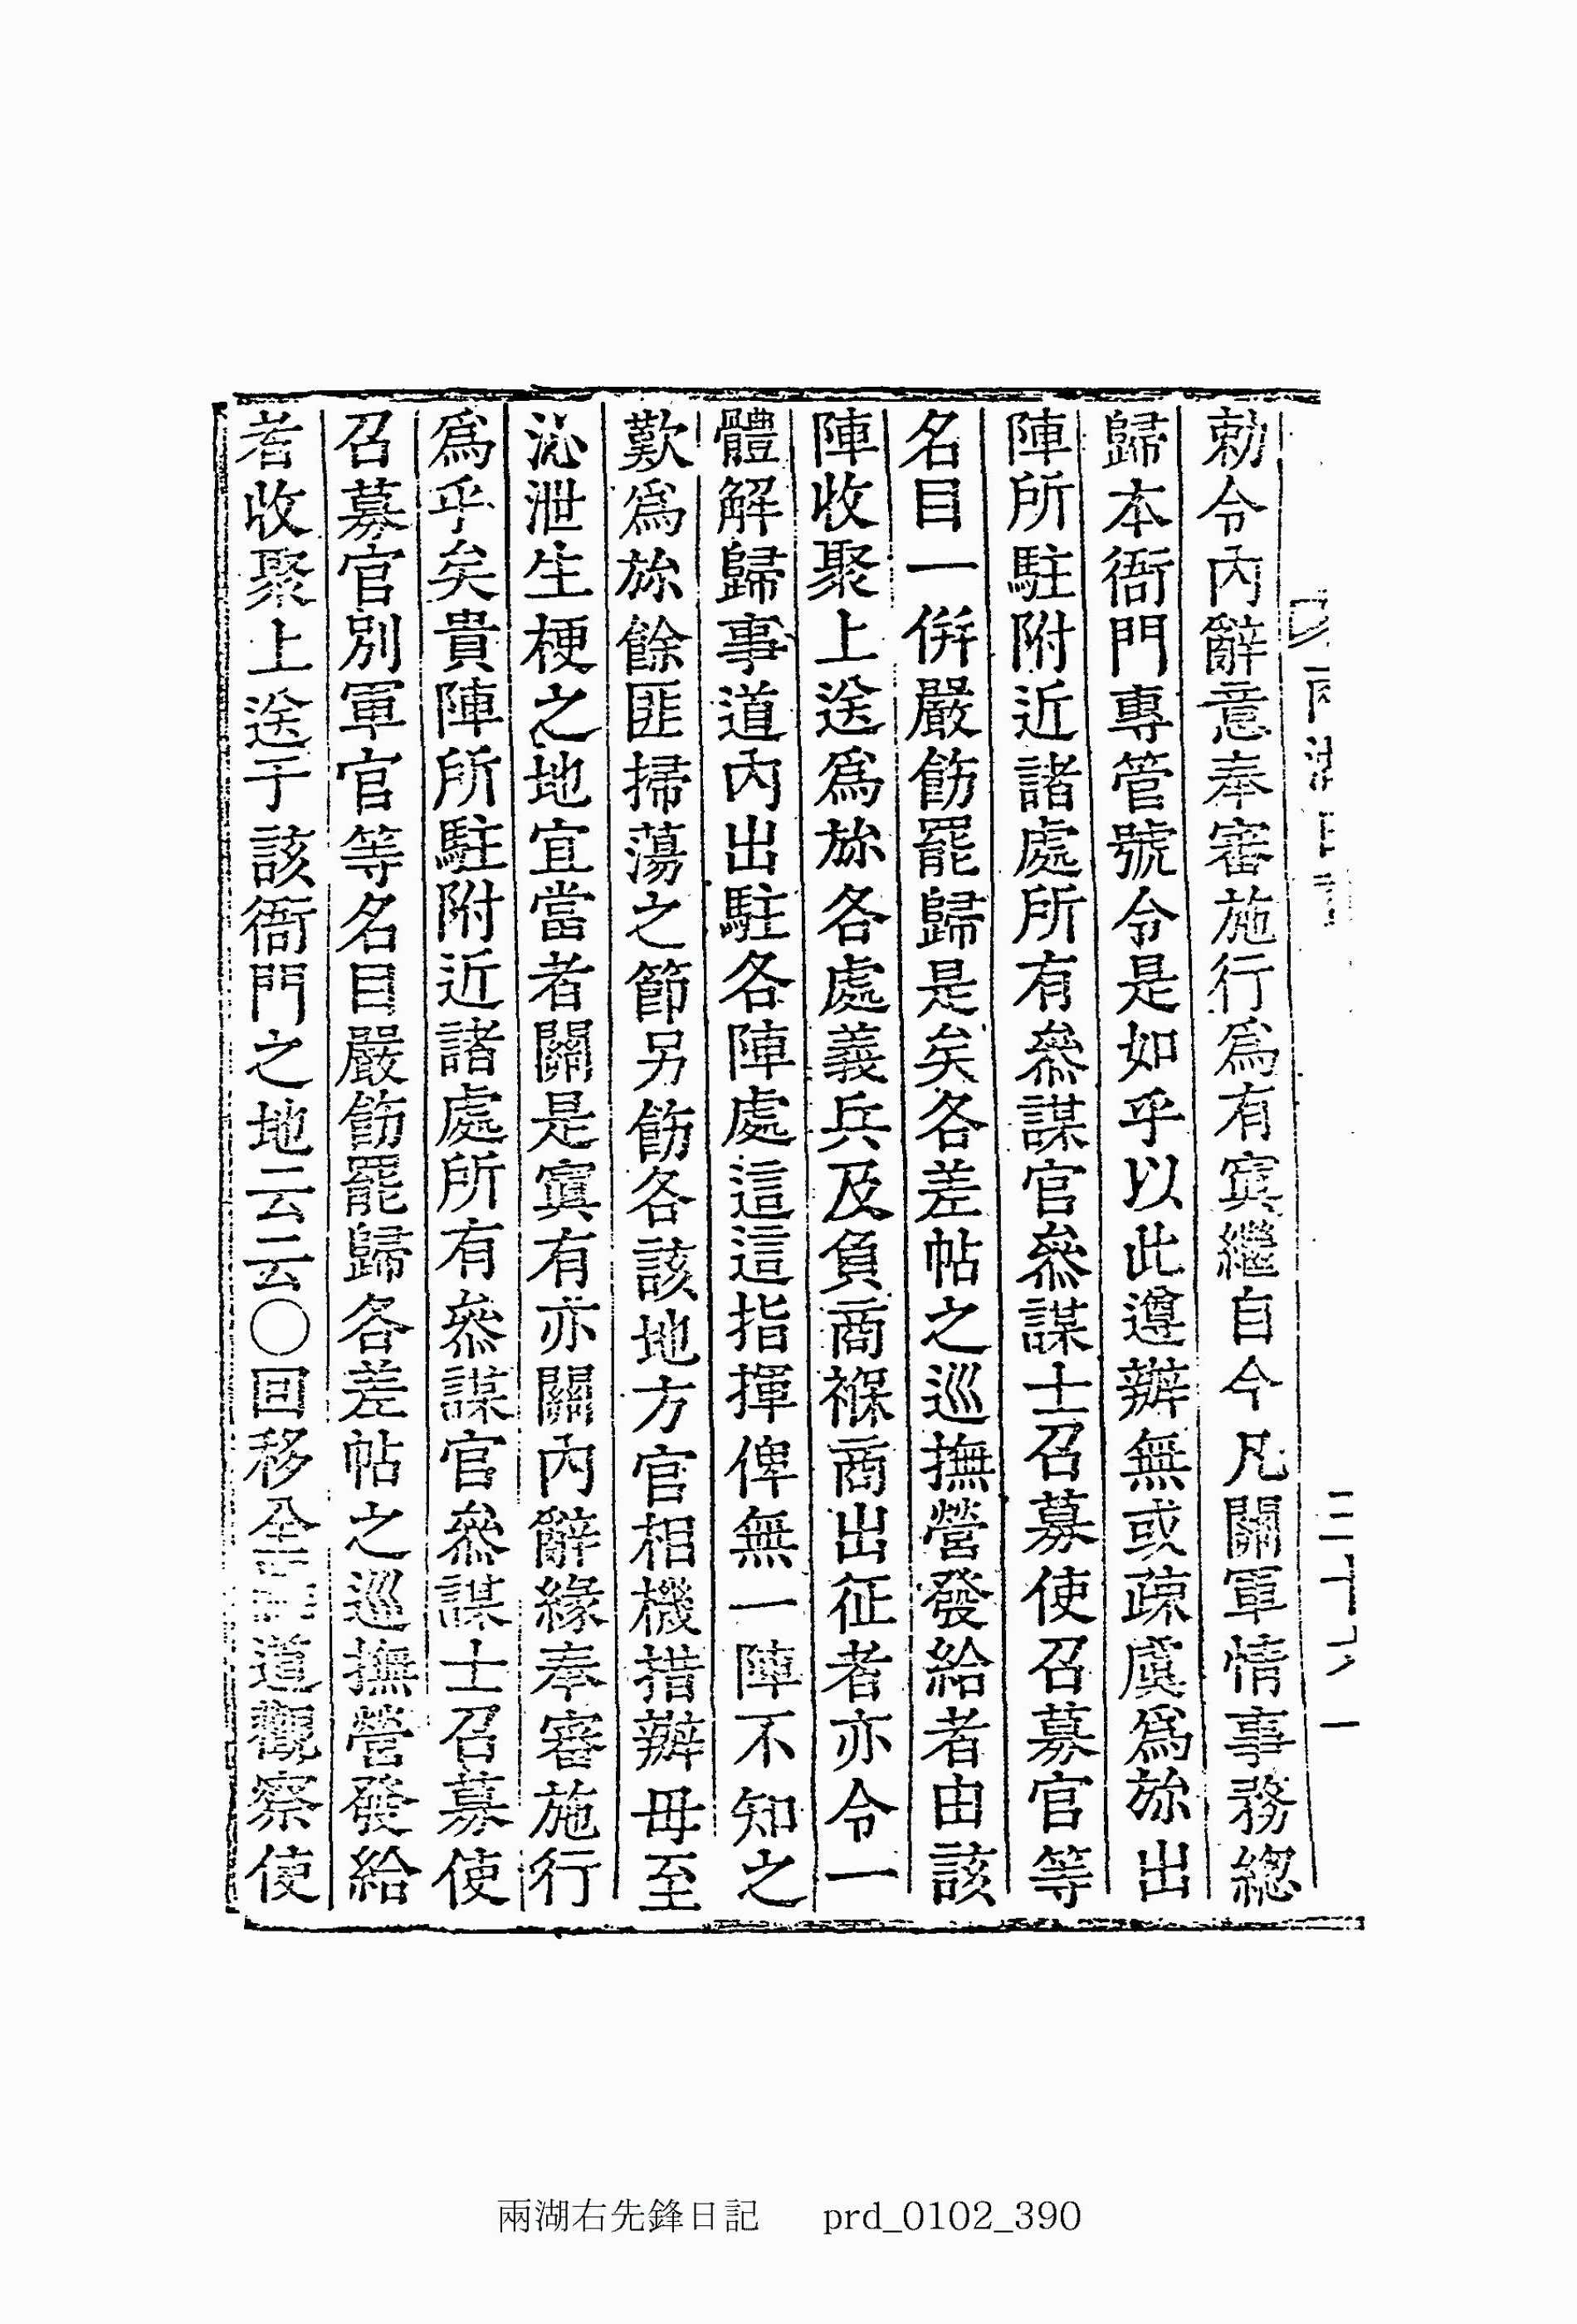 勅令內辭意奉審施行爲有寘繼自今凡關軍情事務總
歸本衙門專管號令是如乎以此遵辦無或疎虞爲旀出
陣所駐附近諸處所有叅謀官叅謀士召募使召募官等
名目一倂嚴飭罷歸是矣各差帖之巡撫營發給者由該
陣收聚上送爲旀各處義兵及負商褓商出征者亦令一
體解歸事道內出駐各陣處這這指揮俾無一陣不知之
歎爲旀餘匪掃蕩之節另飭各該地方官相機措辦毋至
沁泄生梗之地宜當者關是寘有亦關內辭緣奉審施行
爲乎矣貴陣所駐附近諸處所有叅謀官叅謀士召募使
召募官別軍官等名目嚴飭罷歸各差帖之巡撫營發給
者收聚上送于該衙門之地云云○回移全羅道觀察使
兩湖右先鋒日記 prd_0102_390